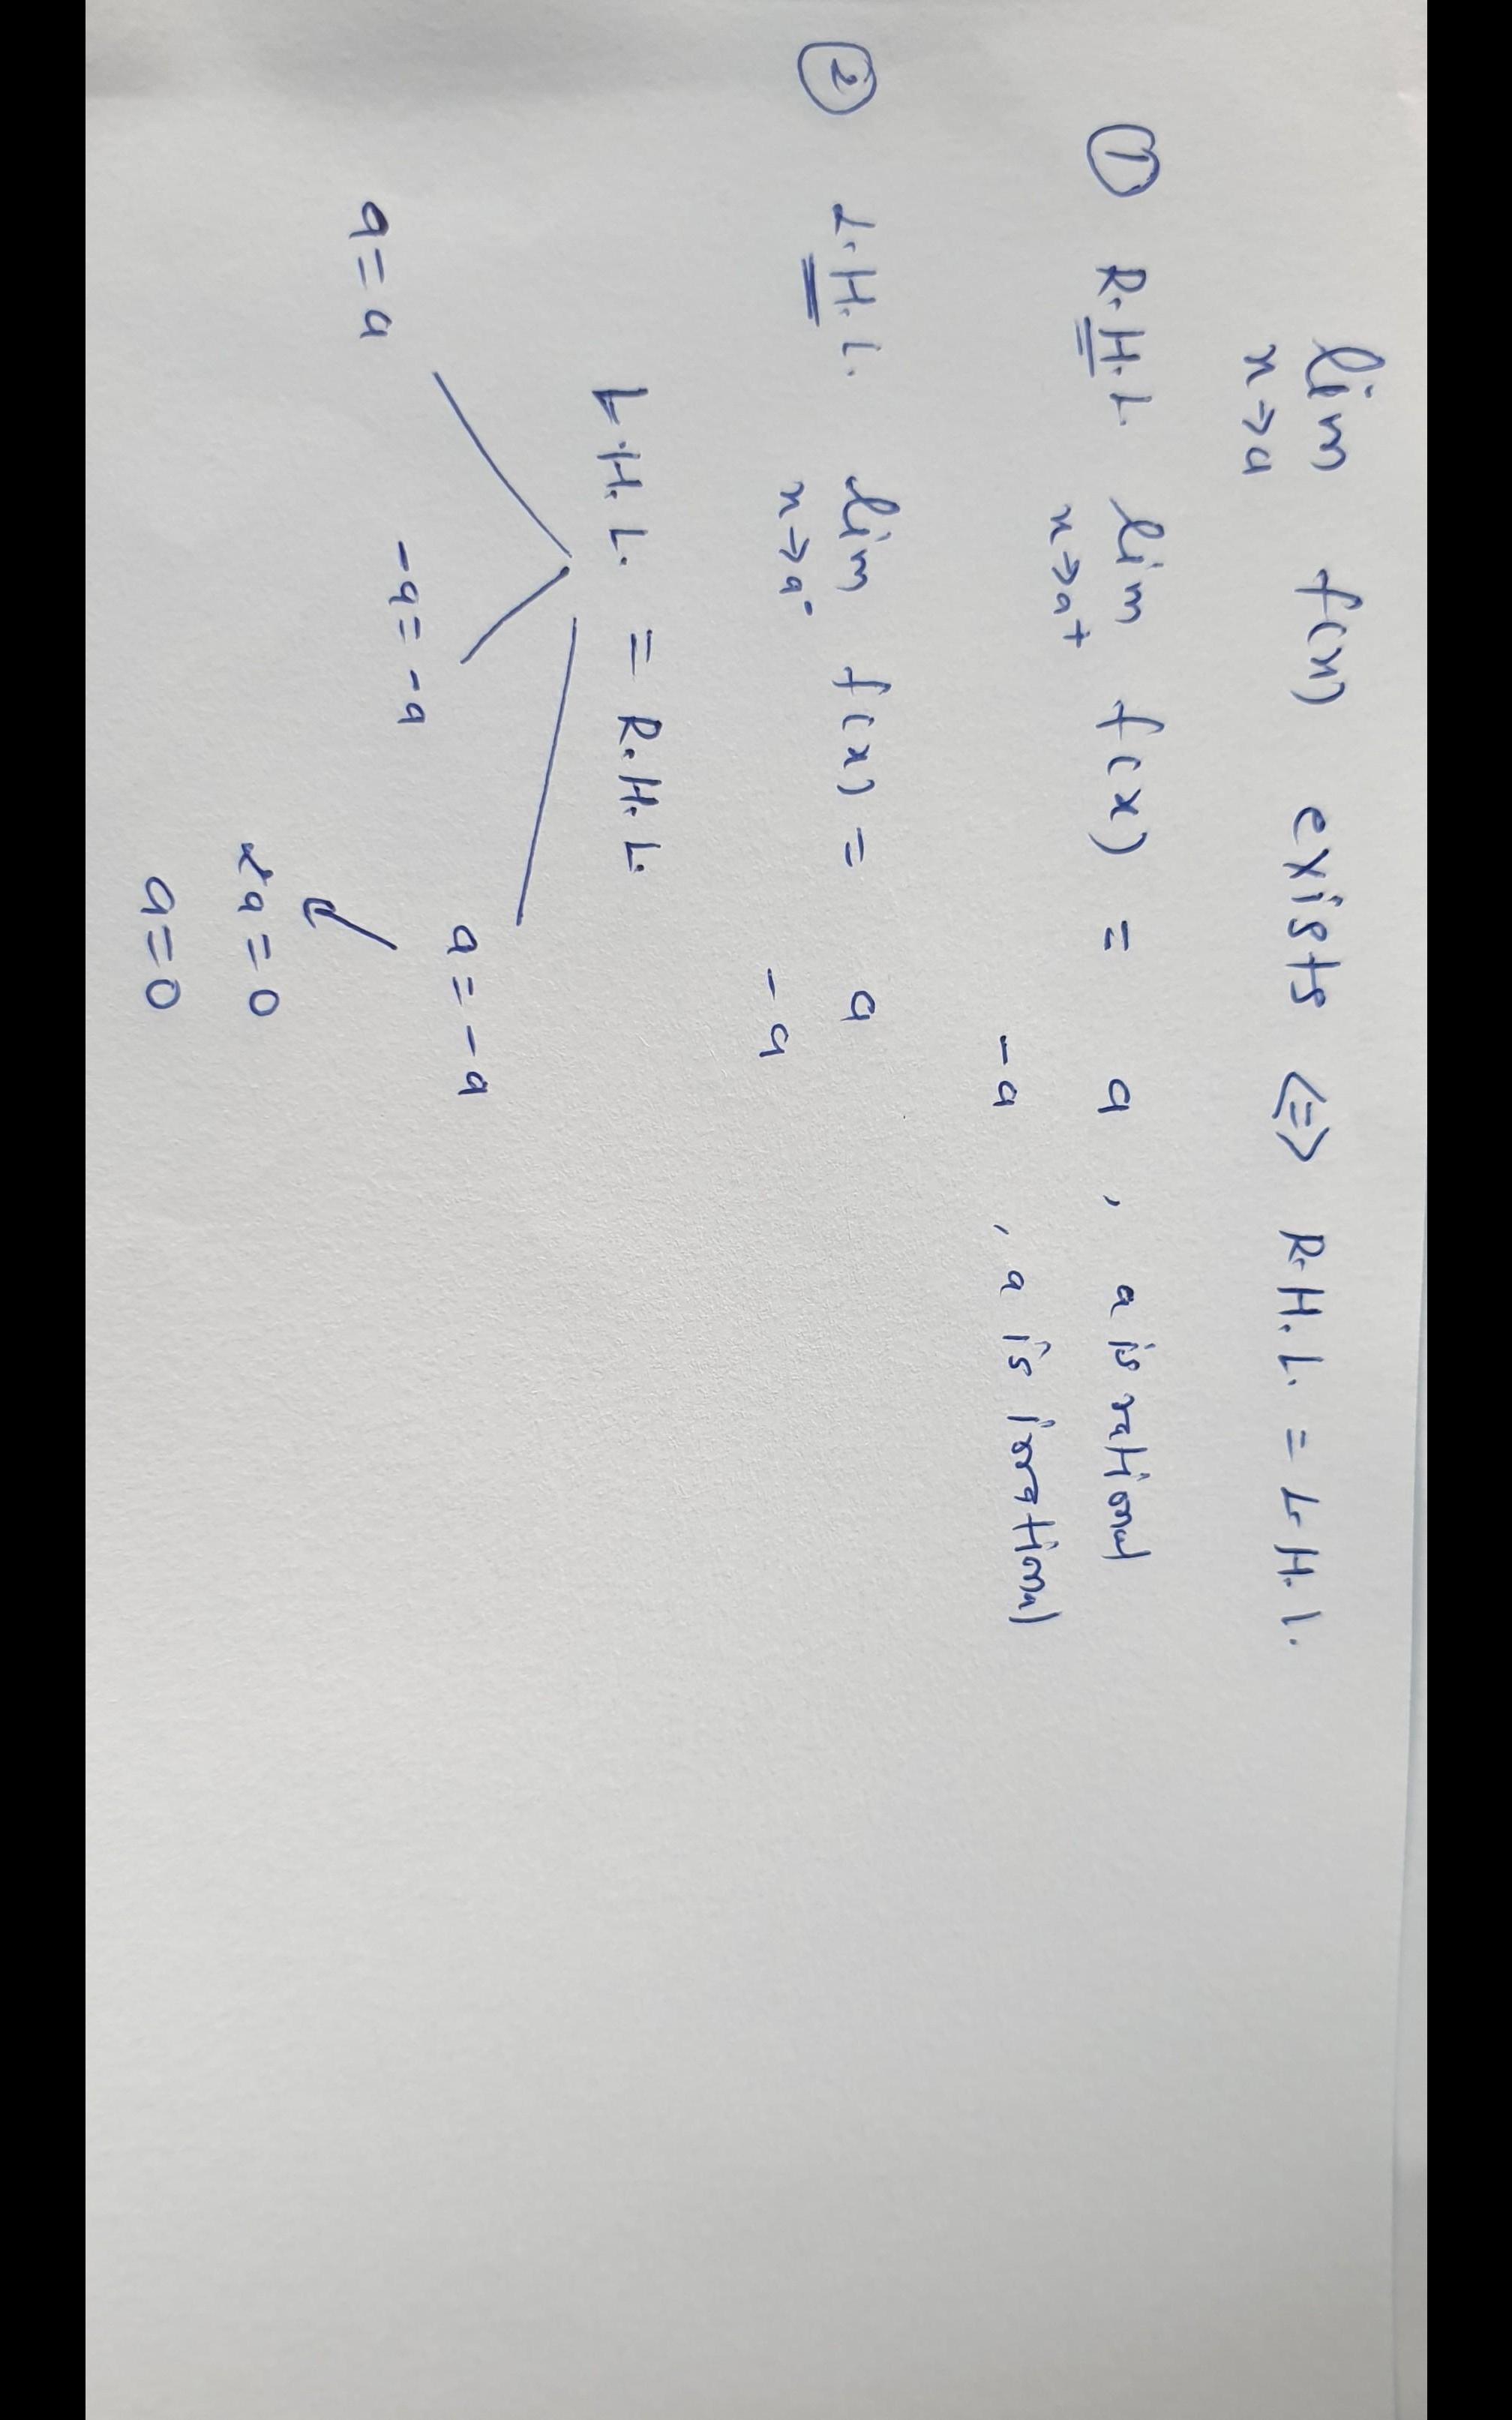 lim f(x) exists <=> R.H.L. = L.H.L.
x→a
① R.H.L. lim f(x) = a , a is rational
x→a+ -a , a is irrational
② L.H.L. lim f(x) = a
x→a- -a
L.H.L. = R.H.L.
a = -a
a = a -a = -a
2a = 0
a = 0